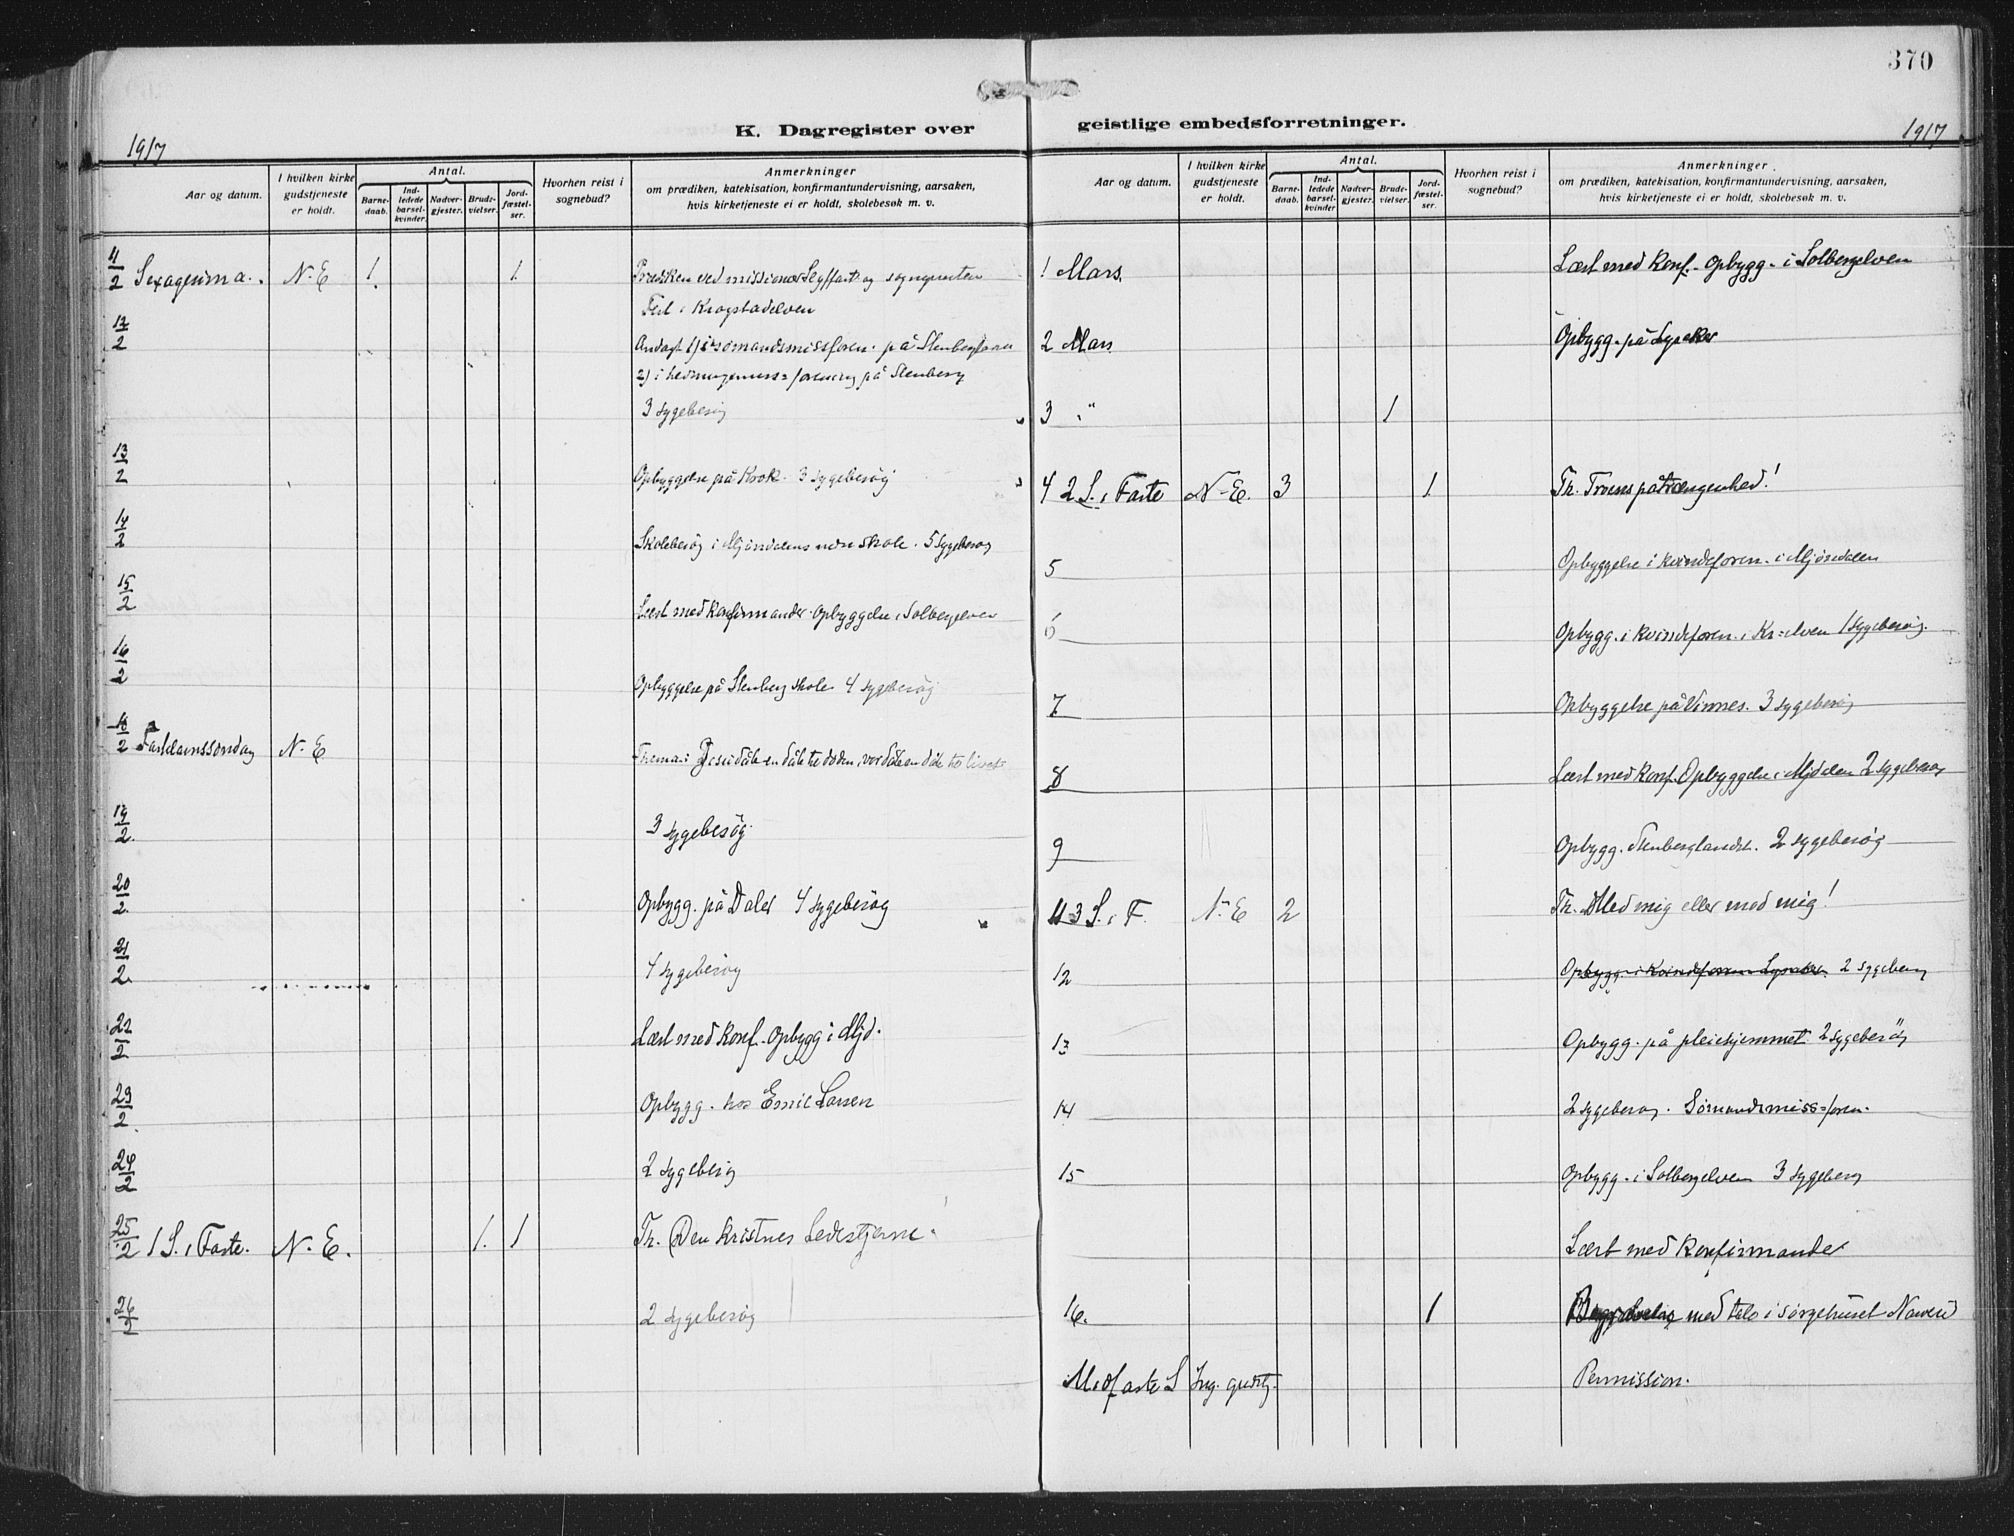 370
K. Dagregister over geistlige embedsforretninger.
1917
1917
Aar og datum.
I hvilken kirke gudstjeneste er holdt.
Antal.
Barne-daab.
Ind-ledede barsel-kvinder
Nadver-gjester.
Brude-vielser.
Jord-fæstel-ser.
Hvorhen reist i sognebud?
Anmerkninger
om prædiken, katekisation, konfirmantundervisning, aarsaken,
hvis kirketjeneste ei er holdt, skolebesøk m. v.
11/2 Sexagesima. N-E 1. 1. Prædiken ved missionær og sognepresten
Fest i Krogstadelven
12/2 Andagt 1) i sømandsmissforen. på
2) i hedningemiss=forening på Stenberg
3 sygebesøg
13/2 Opbyggelse på Krok. 3 sygebesøg
14/2 Skolebesøg i Mjøndalens nedre skole. 5 sygebesøg
15/2 Læst med konfirmander. Opbyggelse i Solbergelven
16/2 Opbyggelse på Stenberg skole 4 sygebesøg
18/2 Fastelavnssøndag N-E Thema: Jesu dåb en dåb til døden, vor dåb en dåb til livet
19/2. 3 sygebesøg.
20/2. Opbygg. på Daler 4 sygebesøg
21/2. 4 sygebesøg
22/2 Læst med Konf. Opbygg i Mjd.
23/2. Opbygg. hos Emil Larsen
24/2 2 sygebesøg
25/2 1 S. i Faste. N. E. 1. 1 Th. Den kristnes Ledestjerne.
26/2 2 sygebesøg
Aar og datum.
I hvilken kirke gudstjeneste er holdt.
Antal.
Barne-daab.
Ind-ledede barsel-kvinder
Nadver-gjester.
Brude-vielser.
Jord-fæstel-ser.
Hvorhen reist i sognebud?
Anmerkninger.
om prædiken, katekisation, konfirmantundervisning, aarsaken,
hvis kirketjeneste ei er holdt, skolebesøk m. v.
1 Mars. Læst med Konf. Opbygg. i Solbergelven
2 Mars Opbygg. på
3 " 1
4 2 S. i Faste N-E. 3 1 Th. Troens påtrængenhed!
5 Opbyggelse i kvindeforen. i Mjøndalen
6 Opbygg. i kvindeforen. i Kr=elven 1 sygebesøg.
7 Opbyggelse på Vinnes. 3 sygebesøg
8 Læst med Konf. Opbyggelse i Mjdalen 2 sygebesøg
9 Opbygg. 2 sygebesøg
11 3 S. i F. N-E 2 Th. Med mig eller mod mig!
12 Opbygg. i Kvindeforen 2 sygebesøg
13 Opbygg. på pleiehjemmet 2 sygebesøg
14 2 sygebesøg. Sømandsmiss=foren.
15 Opbygg. i Solbergelven 3 sygebesøg
Læst med Konfirmander
16. 1 Begravelse med tale i sørgehuset
Midfaste S Ing. gudstj. Permission.